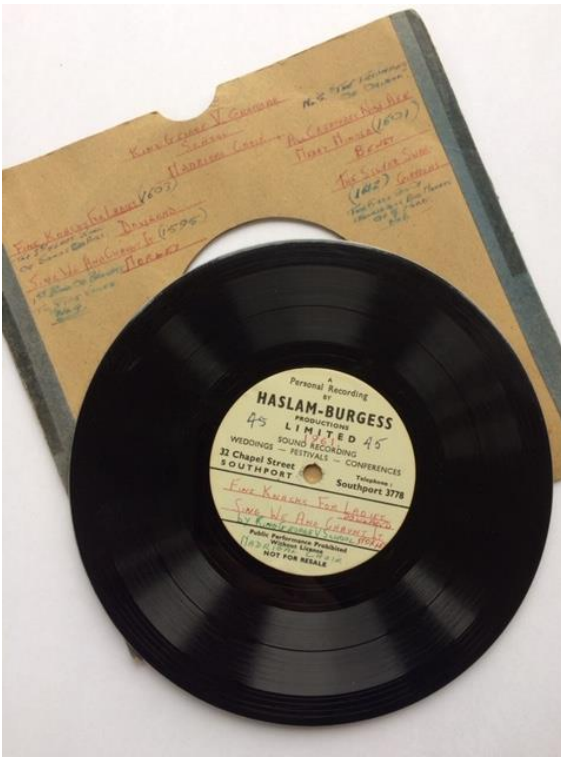 KING GEORGE V GRAMMAR
SCHOOL
MADRIGAL CHOIR
FINE KNACKS FOR LADIES (1603)
DOWLAND
SING WE AND CHANT IT (1595)
MORLEY
N.B. "THE TRIUMPHS
OF ORIANA"
ALL CREATURES NOW ARE
MERRY MINDED (1601)
BENET
THE SILVER SWAN
(1612) GIBBONS
A
Personal Recording
BY
HASLAM-BURGESS
PRODUCTIONS
45 LIMITED 45
1961
SOUND RECORDING
WEDDINGS — FESTIVALS — CONFERENCES
32 Chapel Street
SOUTHPORT
Telephone :
Southport 3778
FINE KNACKS FOR LADIES
DOWLAND
SING WE AND CHANT IT
BY KING GEORGE V SCHOOL MORLEY
Public Performance Prohibited
Without Licence
MADRIGAL CHOIR
NOT FOR RESALE